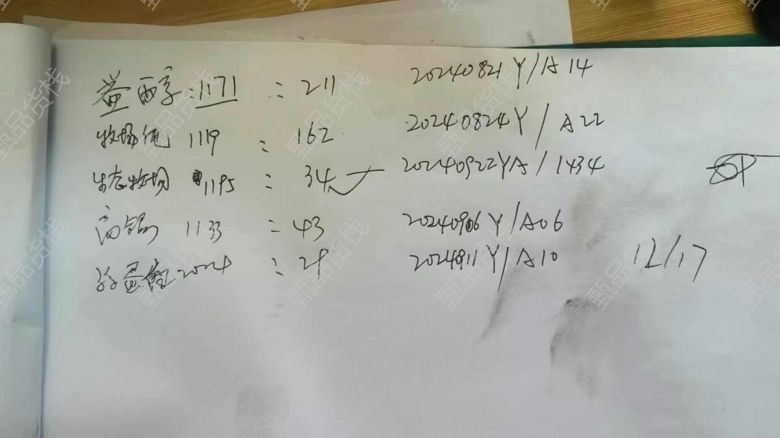 益西亨:1171 : 211 20240821Y/A14
牧场纯 1119 : 162 20240824Y/A22
生态牧场 1195 : 34 20240922YA/1434
高钙 1133 : 43 20240906Y/A06
2024 : 29 2024911Y/A10 12/17